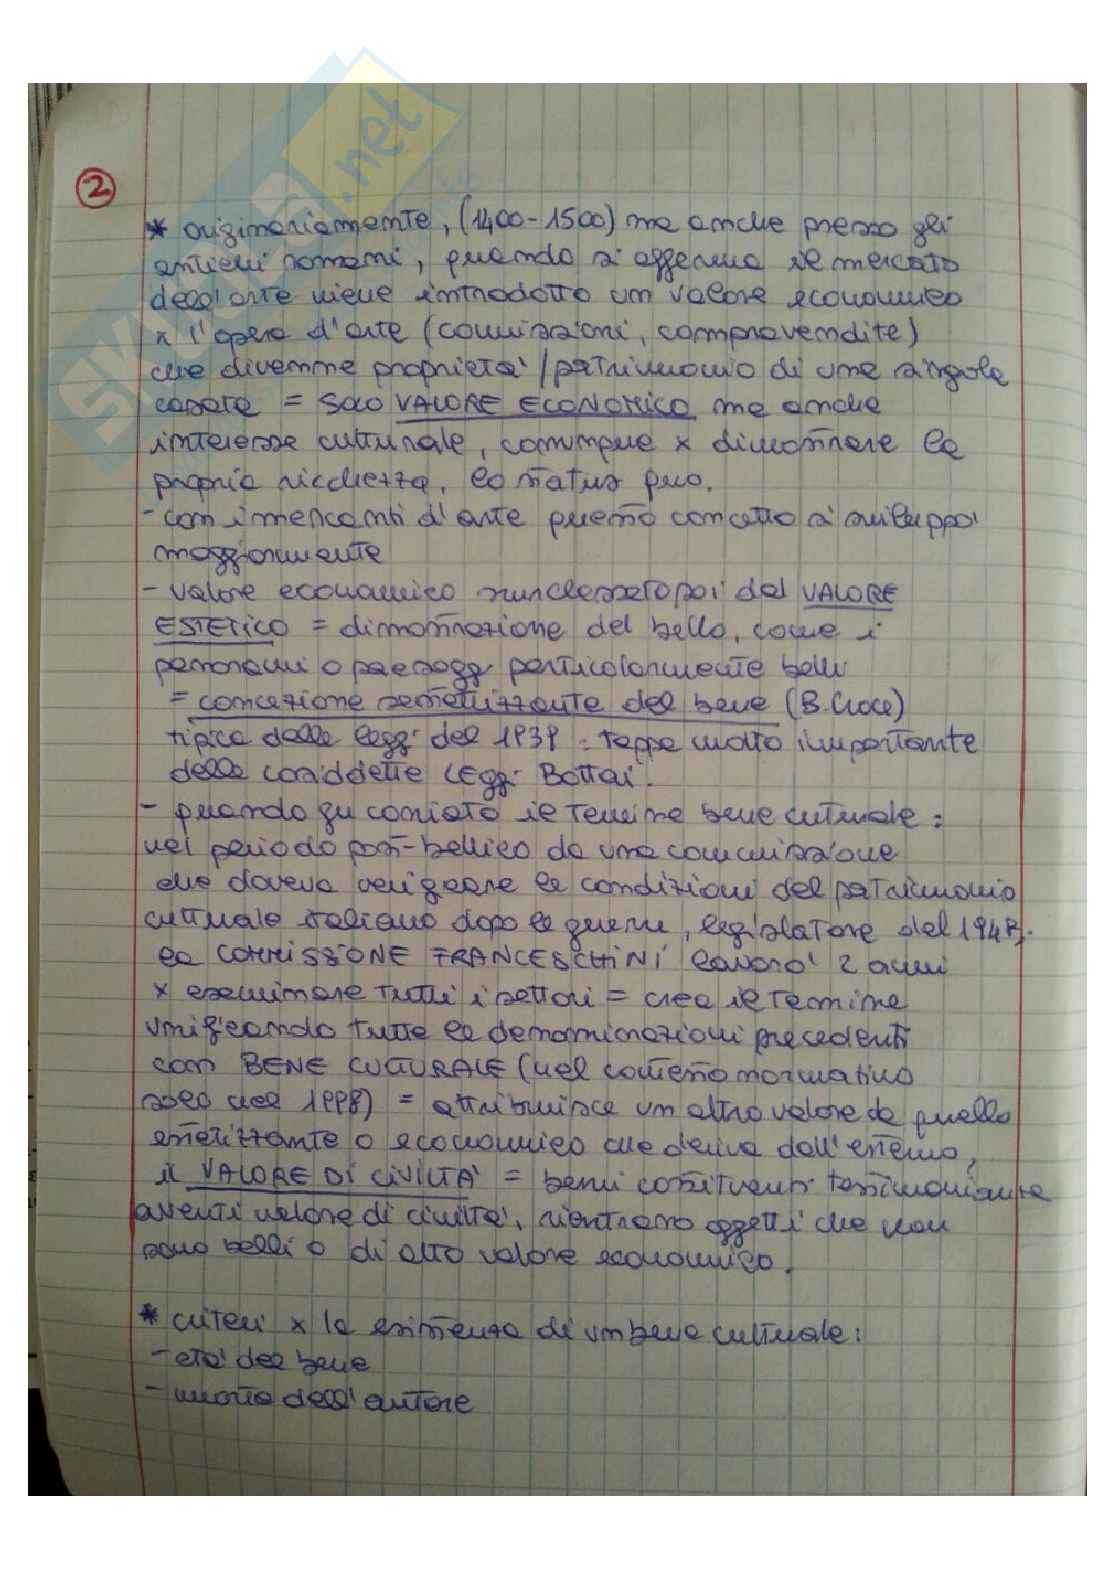 SKUOLA.net
2
* originariamente, (1400-1500) ma anche presso gli
antichi romani, quando si afferma il mercato
dell'arte viene introdotto un valore economico
x l'opera d'arte (commissioni, compravendite)
che divenne proprietà/patrimonio di una singola
casata = solo VALORE ECONOMICO ma anche
interesse culturale, comunque x dimostrare la
propria ricchezza, lo status quo.
- con i mercanti d'arte questo concetto si sviluppò
maggiormente
- valore economico surclassato poi dal VALORE
ESTETICO = dimostrazione del bello, come i
panorami o paesaggi particolarmente belli
= concezione estetizzante del bene (B. Croce)
tipica delle leggi del 1939 = tappa molto importante
delle cosiddette LEggi Bottai.
- quando fu coniato il termine bene culturale =
nel periodo post-bellico da una commissione
che doveva verificare le condizioni del patrimonio
culturale italiano dopo la guerra, legislatore del 1948.
la COMMISSIONE FRANCESCHINI lavorò 2 anni
x esaminare tutti i settori = crea il termine
unificando tutte le denominazioni precedenti
con BENE CULTURALE (nel contesto normativo
solo nel 1998) = attribuisce un altro valore da quello
estetizzante o economico che deriva dall'esterno,
il VALORE DI CIVILTA' = beni costituenti testimonianza
aventi valore di civiltà, rientrano oggetti che non
sono belli o di alto valore economico.
* criteri x la esistenza di un bene culturale:
- età del bene
- morte dell'autore